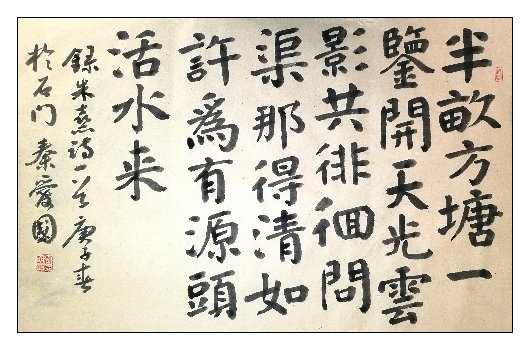 半畝方塘一
鑒開天光雲
影共徘徊問
渠那得清如
許為有源頭
活水来
録朱熹詩一首庚子春
於石门秦愛國